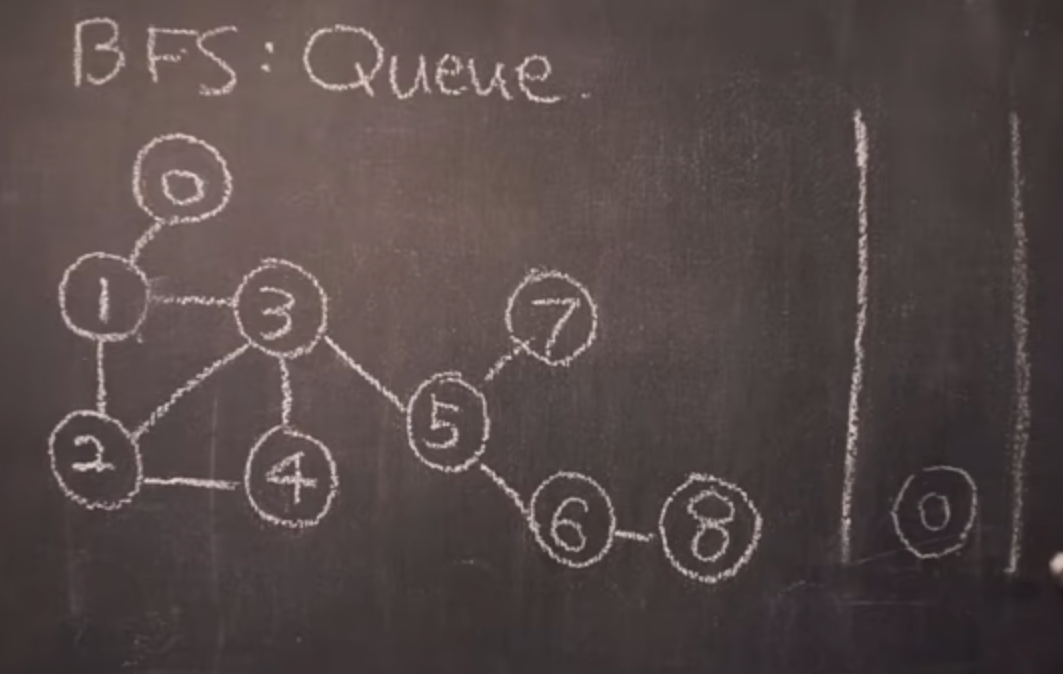 BFS: Queue.
0
1 3 7
5
2 4
6 8 0